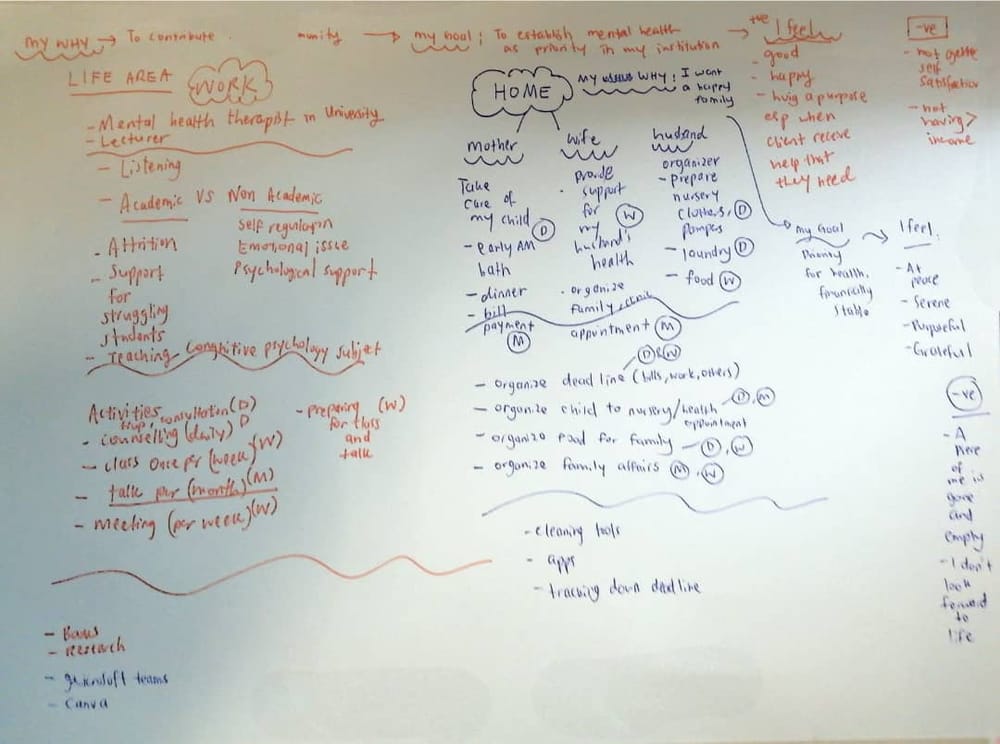 MY WHY → To contribute munity → my Goal: To establish mental health
as priority in my institution →
+ve I feel
- good
- happy
- hvig a purpose
esp when
client receive
help that
they need
-ve
- not
self
satisfaction
- not
having >
income
LIFE AREA WORK
- Mental health therapist in University
- Lecturer
- Listening
- Academic VS Non Academic
self regulation
Emotional issue
Psychological support
- Attrition
- Support
for
struggling
students
- Teaching Conghitive psychology subject
Activities
consultation (D)
- counselling (daily) D
- class once per (week) (W)
- talk per (month) (M)
- meeting (per week) (W)
- preparing (W)
for class
and
talk
- Research
- Microsoft teams
- Canva
HOME
MY WHY: I want
a happy
family
mother
Take
care of
my child (D)
- early AM
bath
- dinner
- bill
payment
(M)
wife
- provide
support
for
my (W)
husband's
health
- organize
family
appointment (M)
husband
organizer
- prepare
nursery
clothers, (D)
pampers
- laundry (D)
- food (W)
(D) & (W)
- organize dead line (bills, work, others)
- organize child to nursery/health (D), (M)
appointment
- organize food for family - (D), (W)
- organize family affairs (M), (W)
- cleaning tools
- apps
- tracking down deadline
my Goal →
Priority
for health,
financially
stable
I feel:
- At
peace
- Serene
- Purposeful
- Grateful
-ve
- A
here
of
me is
gone
and
empty
- I don't
look
forward
to
life